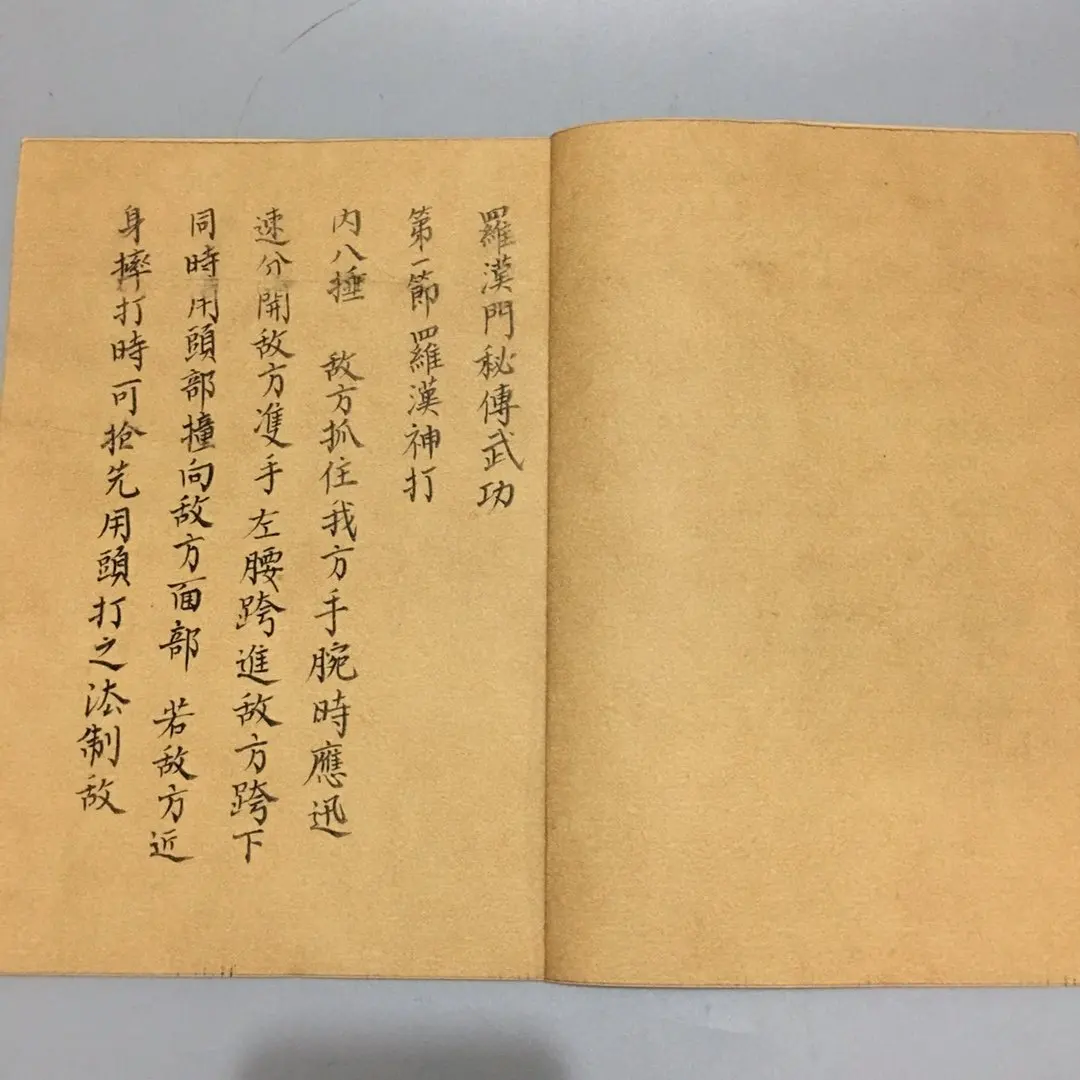 羅漢門秘傳武功
第一節羅漢神打
内八捶　敌方抓住我方手腕時應迅
速分開敌方隻手左腰跨進敌方跨下
同時用頭部撞向敌方面部　若敌方近
身摔打時可抢先用頭打之法制敌